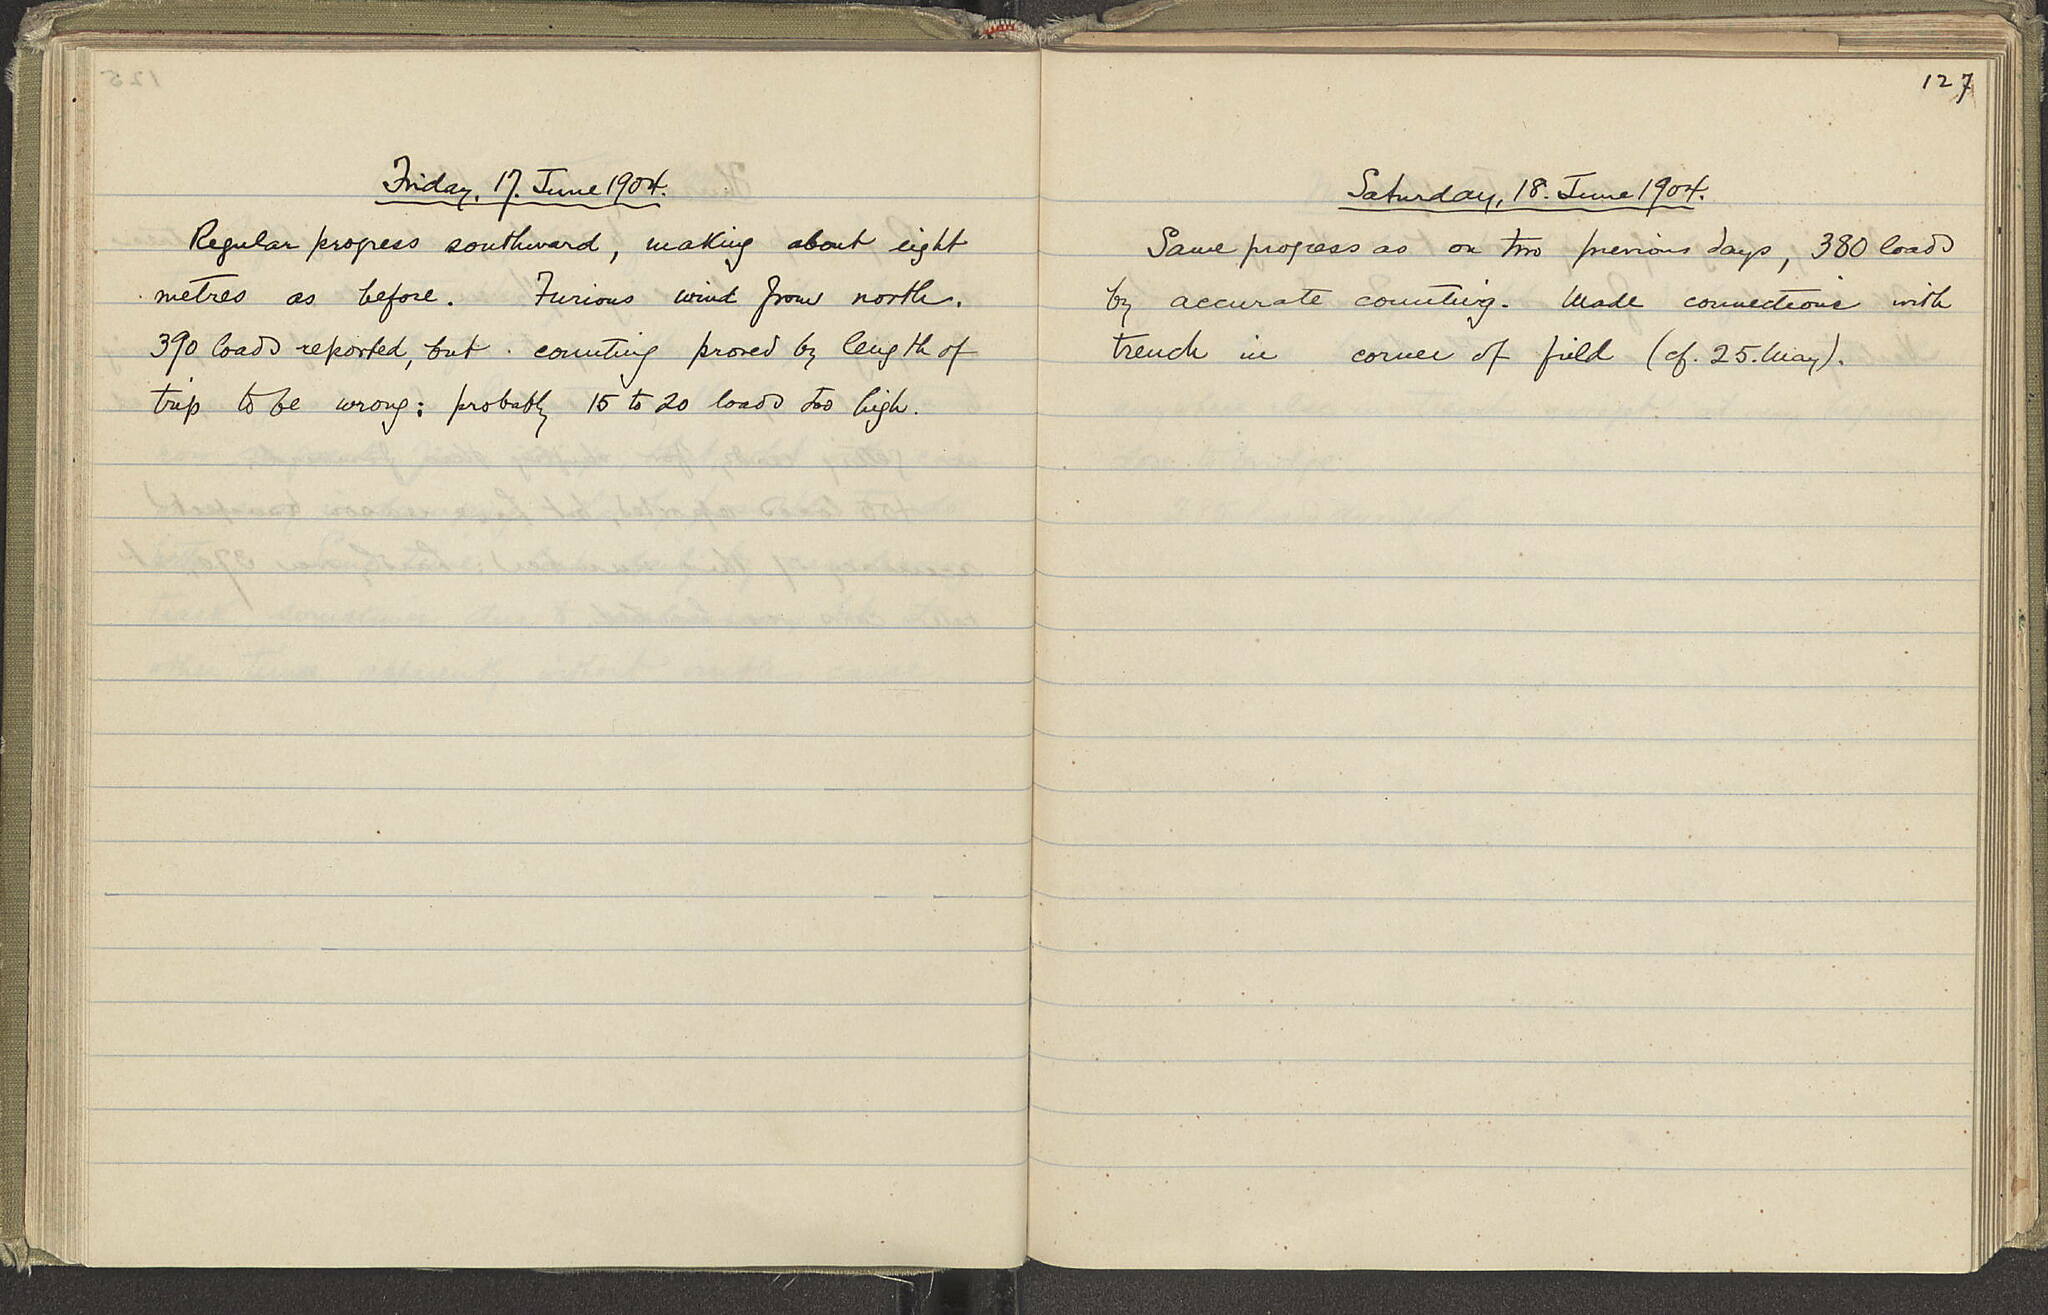 Friday, 17. June 1904.
Regular progress southward, making about eight
metres as before. Furious wind from north.
390 loads reported, but counting proved by length of
trip to be wrong; probably 15 to 20 loads too high.
127
Saturday, 18. June 1904.
Same progress as on two previous days, 380 loads
by accurate counting. Made connections with
trench in corner of field (cf. 25. May).